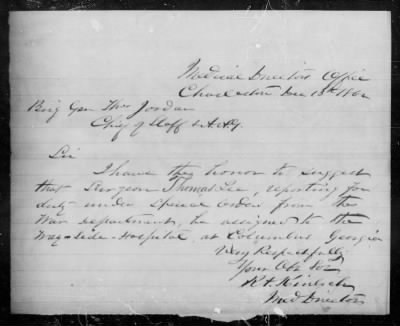 Medical Directors Office
Charleston Dec 13th 1862
Brig Gen Thos Jordan
Chief of Staff & A.A.G.
Sir
I have the honor to suggest
that Surgeon Thomas Lee, reporting for
duty under Special Orders from the
War department, be assigned to the
Way-side-Hospital, at Columbus Georgia
Very Respectfully
Your Obt Svt
Med Director